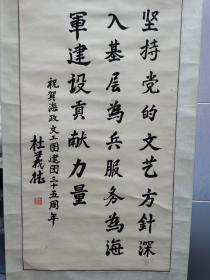 坚持党的文艺方針深
入基层為兵服务為海
軍建設貢献力量
祝贺海政文工团建团三十五周年
杜義德